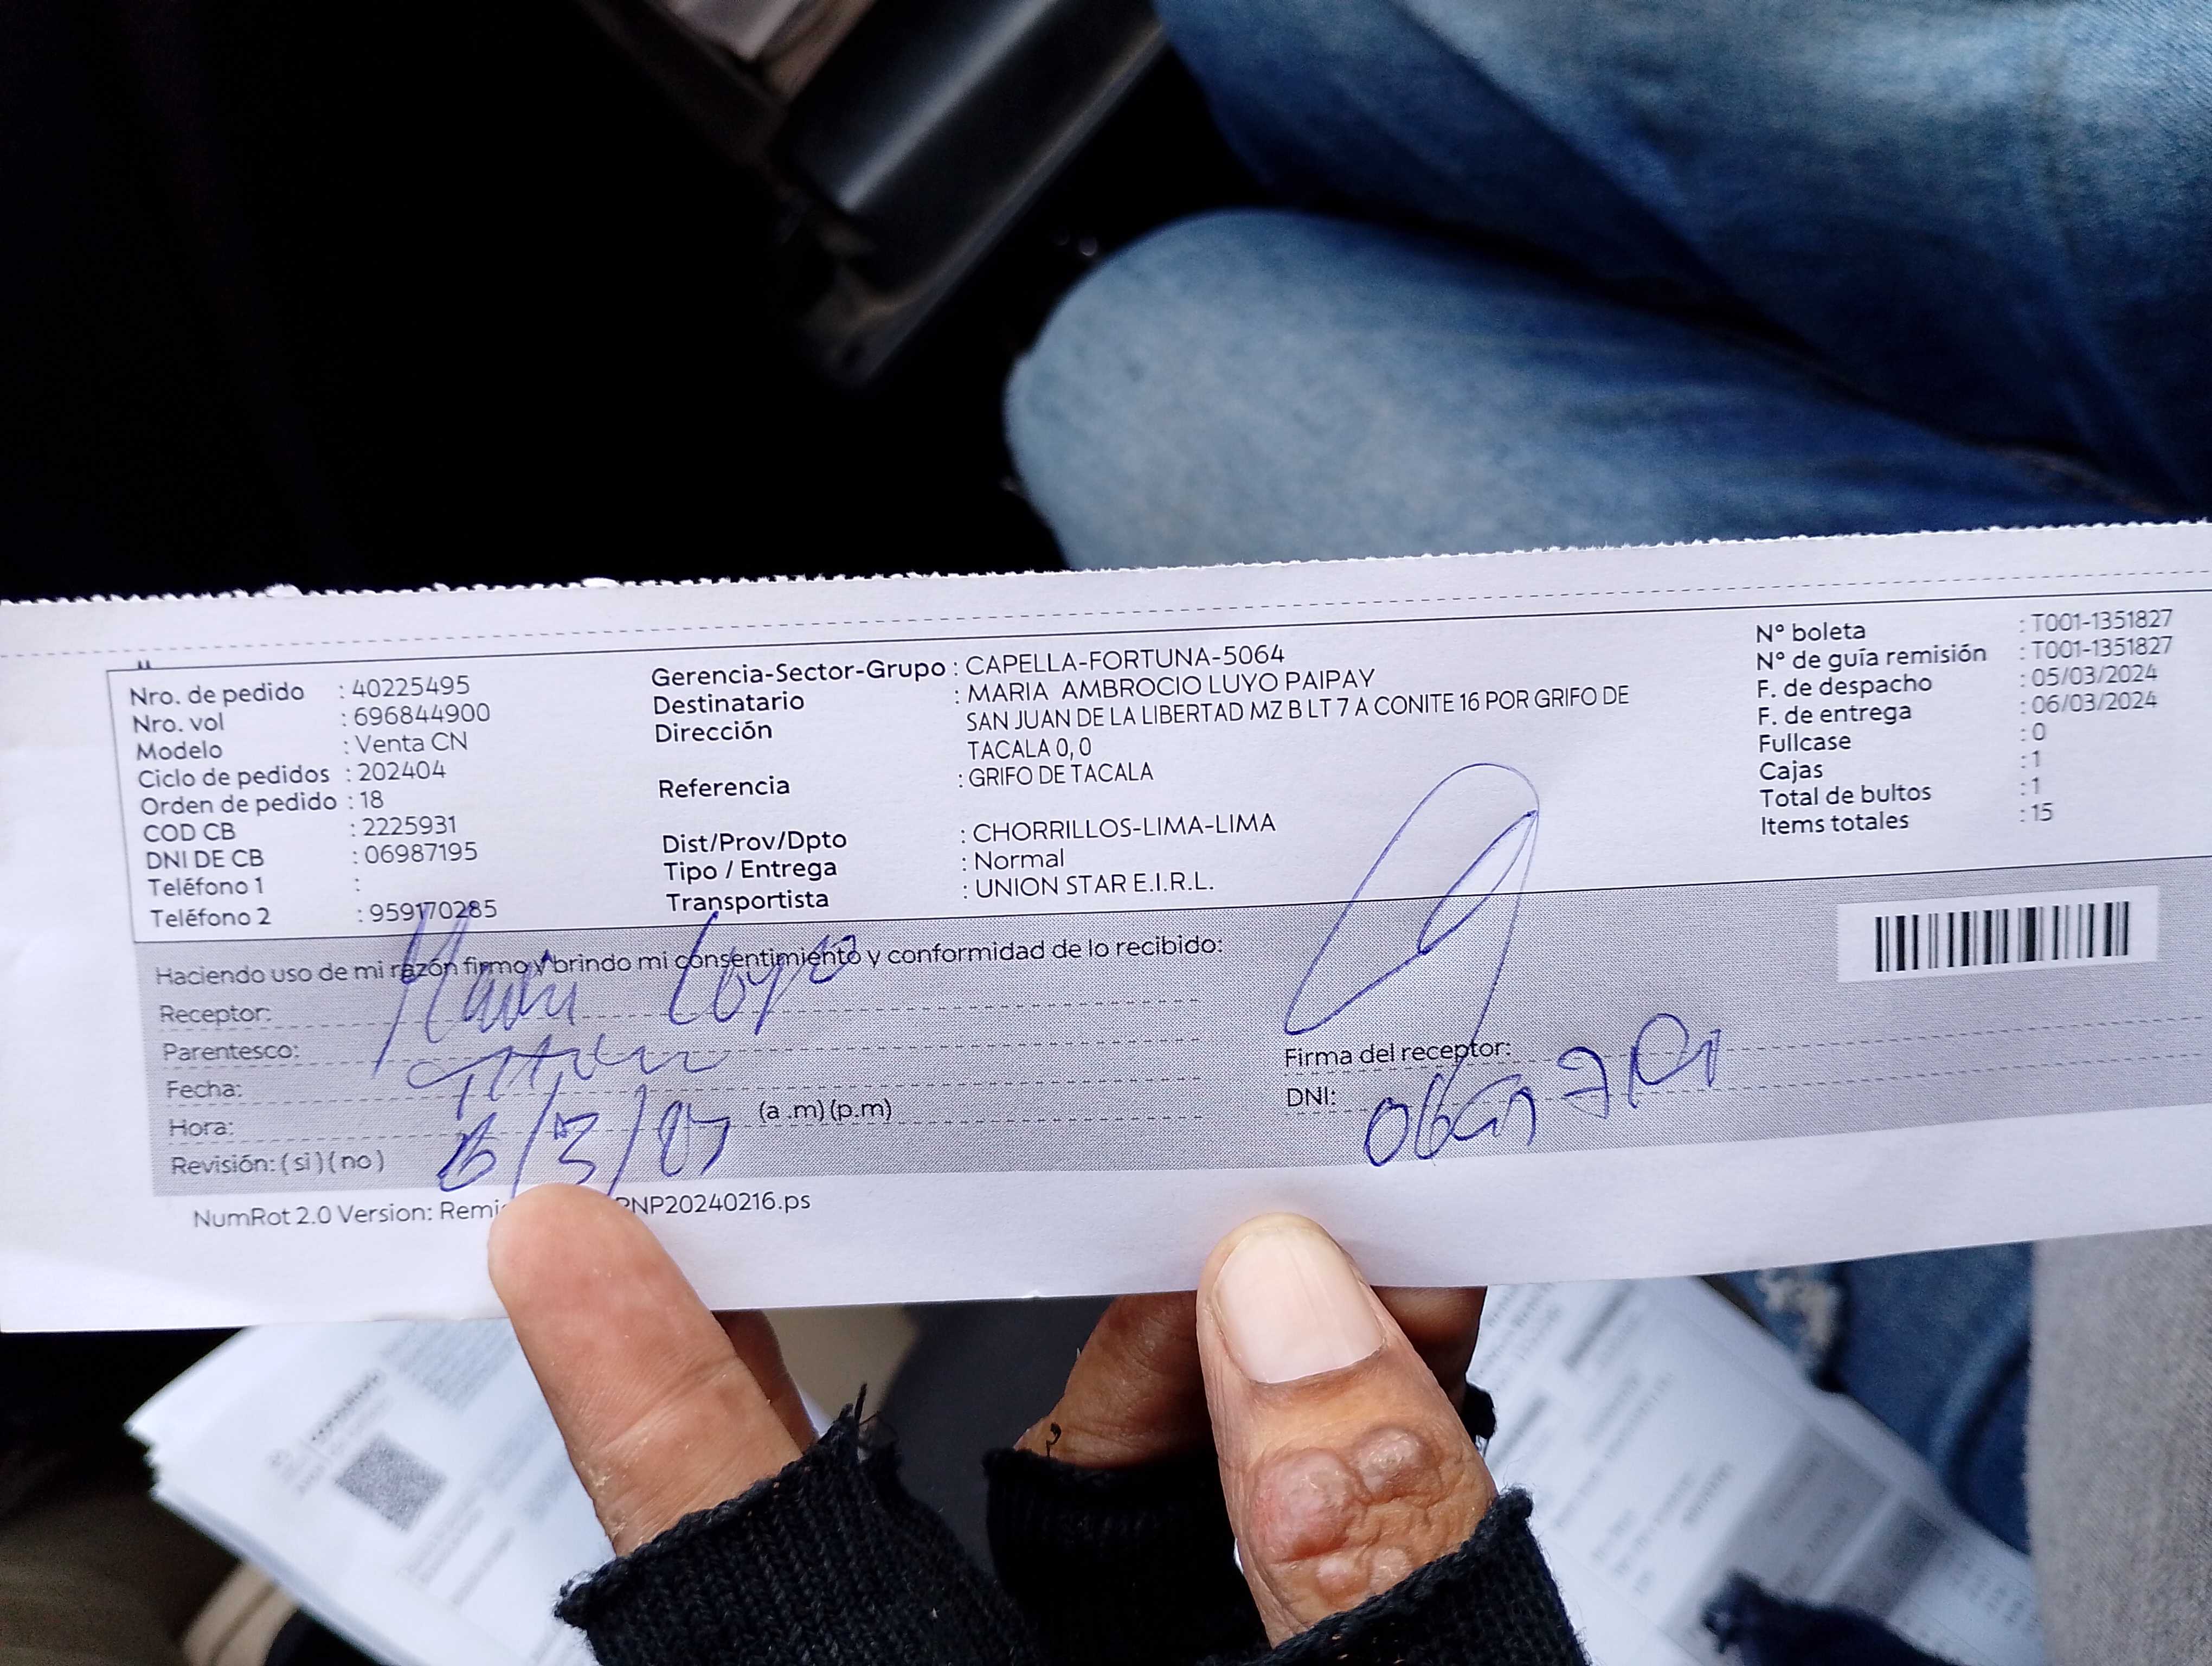 Nro. de pedido : 40225495
Nro. vol : 696844900
Modelo : Venta CN
Ciclo de pedidos : 202404
Orden de pedido : 18
COD CB : 2225931
DNI DE CB : 06987195
Teléfono 1 :
Teléfono 2 : 959170285
Gerencia-Sector-Grupo : CAPELLA-FORTUNA-5064
Destinatario : MARIA AMBROCIO LUYO PAIPAY
Dirección SAN JUAN DE LA LIBERTAD MZ B LT 7 A CONITE 16 POR GRIFO DE
TACALA 0, 0
Referencia : GRIFO DE TACALA
Dist/Prov/Dpto : CHORRILLOS-LIMA-LIMA
Tipo / Entrega : Normal
Transportista : UNION STAR E.I.R.L.
N° boleta : T001-1351827
N° de guía remisión : T001-1351827
F. de despacho : 05/03/2024
F. de entrega : 06/03/2024
Fullcase : 0
Cajas : 1
Total de bultos : 1
Items totales : 15
Haciendo uso de mi razón firmo y brindo mi consentimiento y conformidad de lo recibido:
Receptor: Luyo
Parentesco:
Fecha:
Hora: (a .m) (p.m)
Revisión: ( si ) ( no )
Firma del receptor:
DNI:
NumRot 2.0 Version: PNP20240216.ps